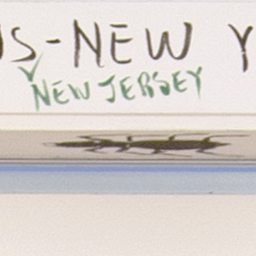 S-NEW Y
NEW JERSEY